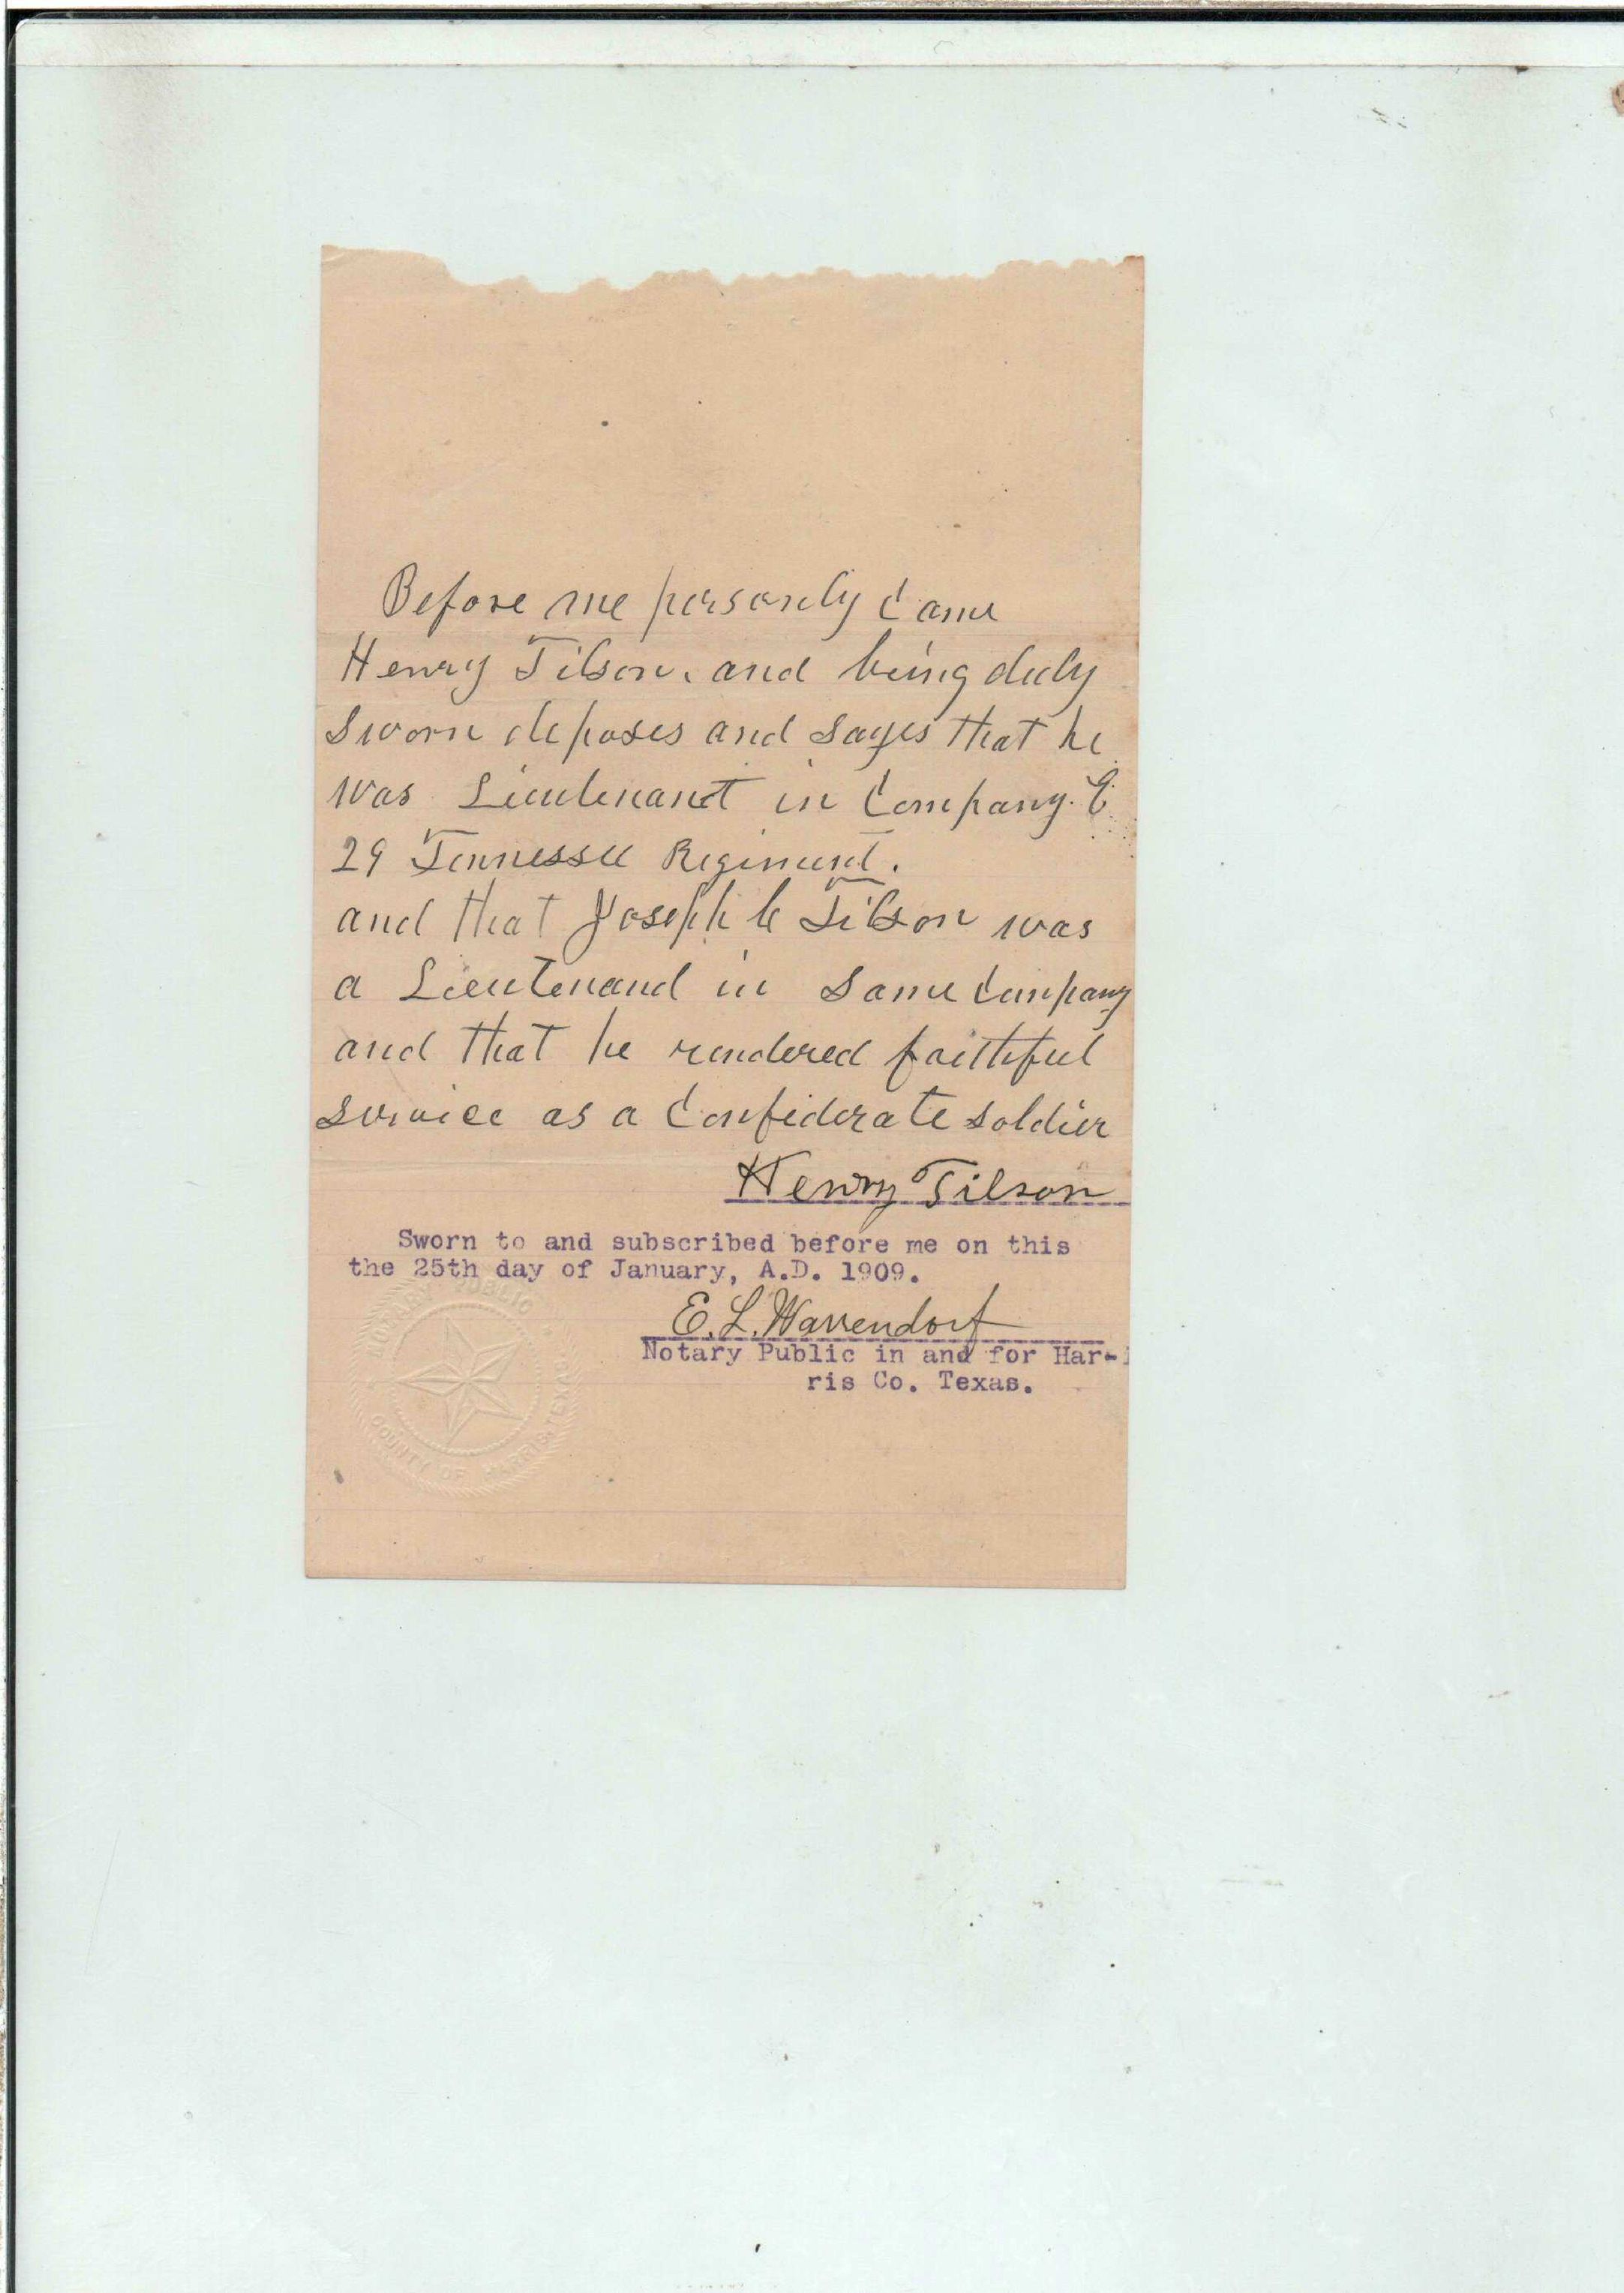 Before me personly came
Henry Tilson. and being duly
sworn deposes and sayes that he
was Lieutenant in Company. E
29 Tennessee Regiment.
and that Joseph C Tilson was
a Lieutenand in same Company
and that he rendered faithful
service as a Confederate soldier
Henry Tilson
Sworn to and subscribed before me on this
the 25th day of January, A.D. 1909.
E. L.
Notary Public in and for Har-
ris Co. Texas.
NOTARY PUBLIC
COUNTY OF HARRIS TEXAS